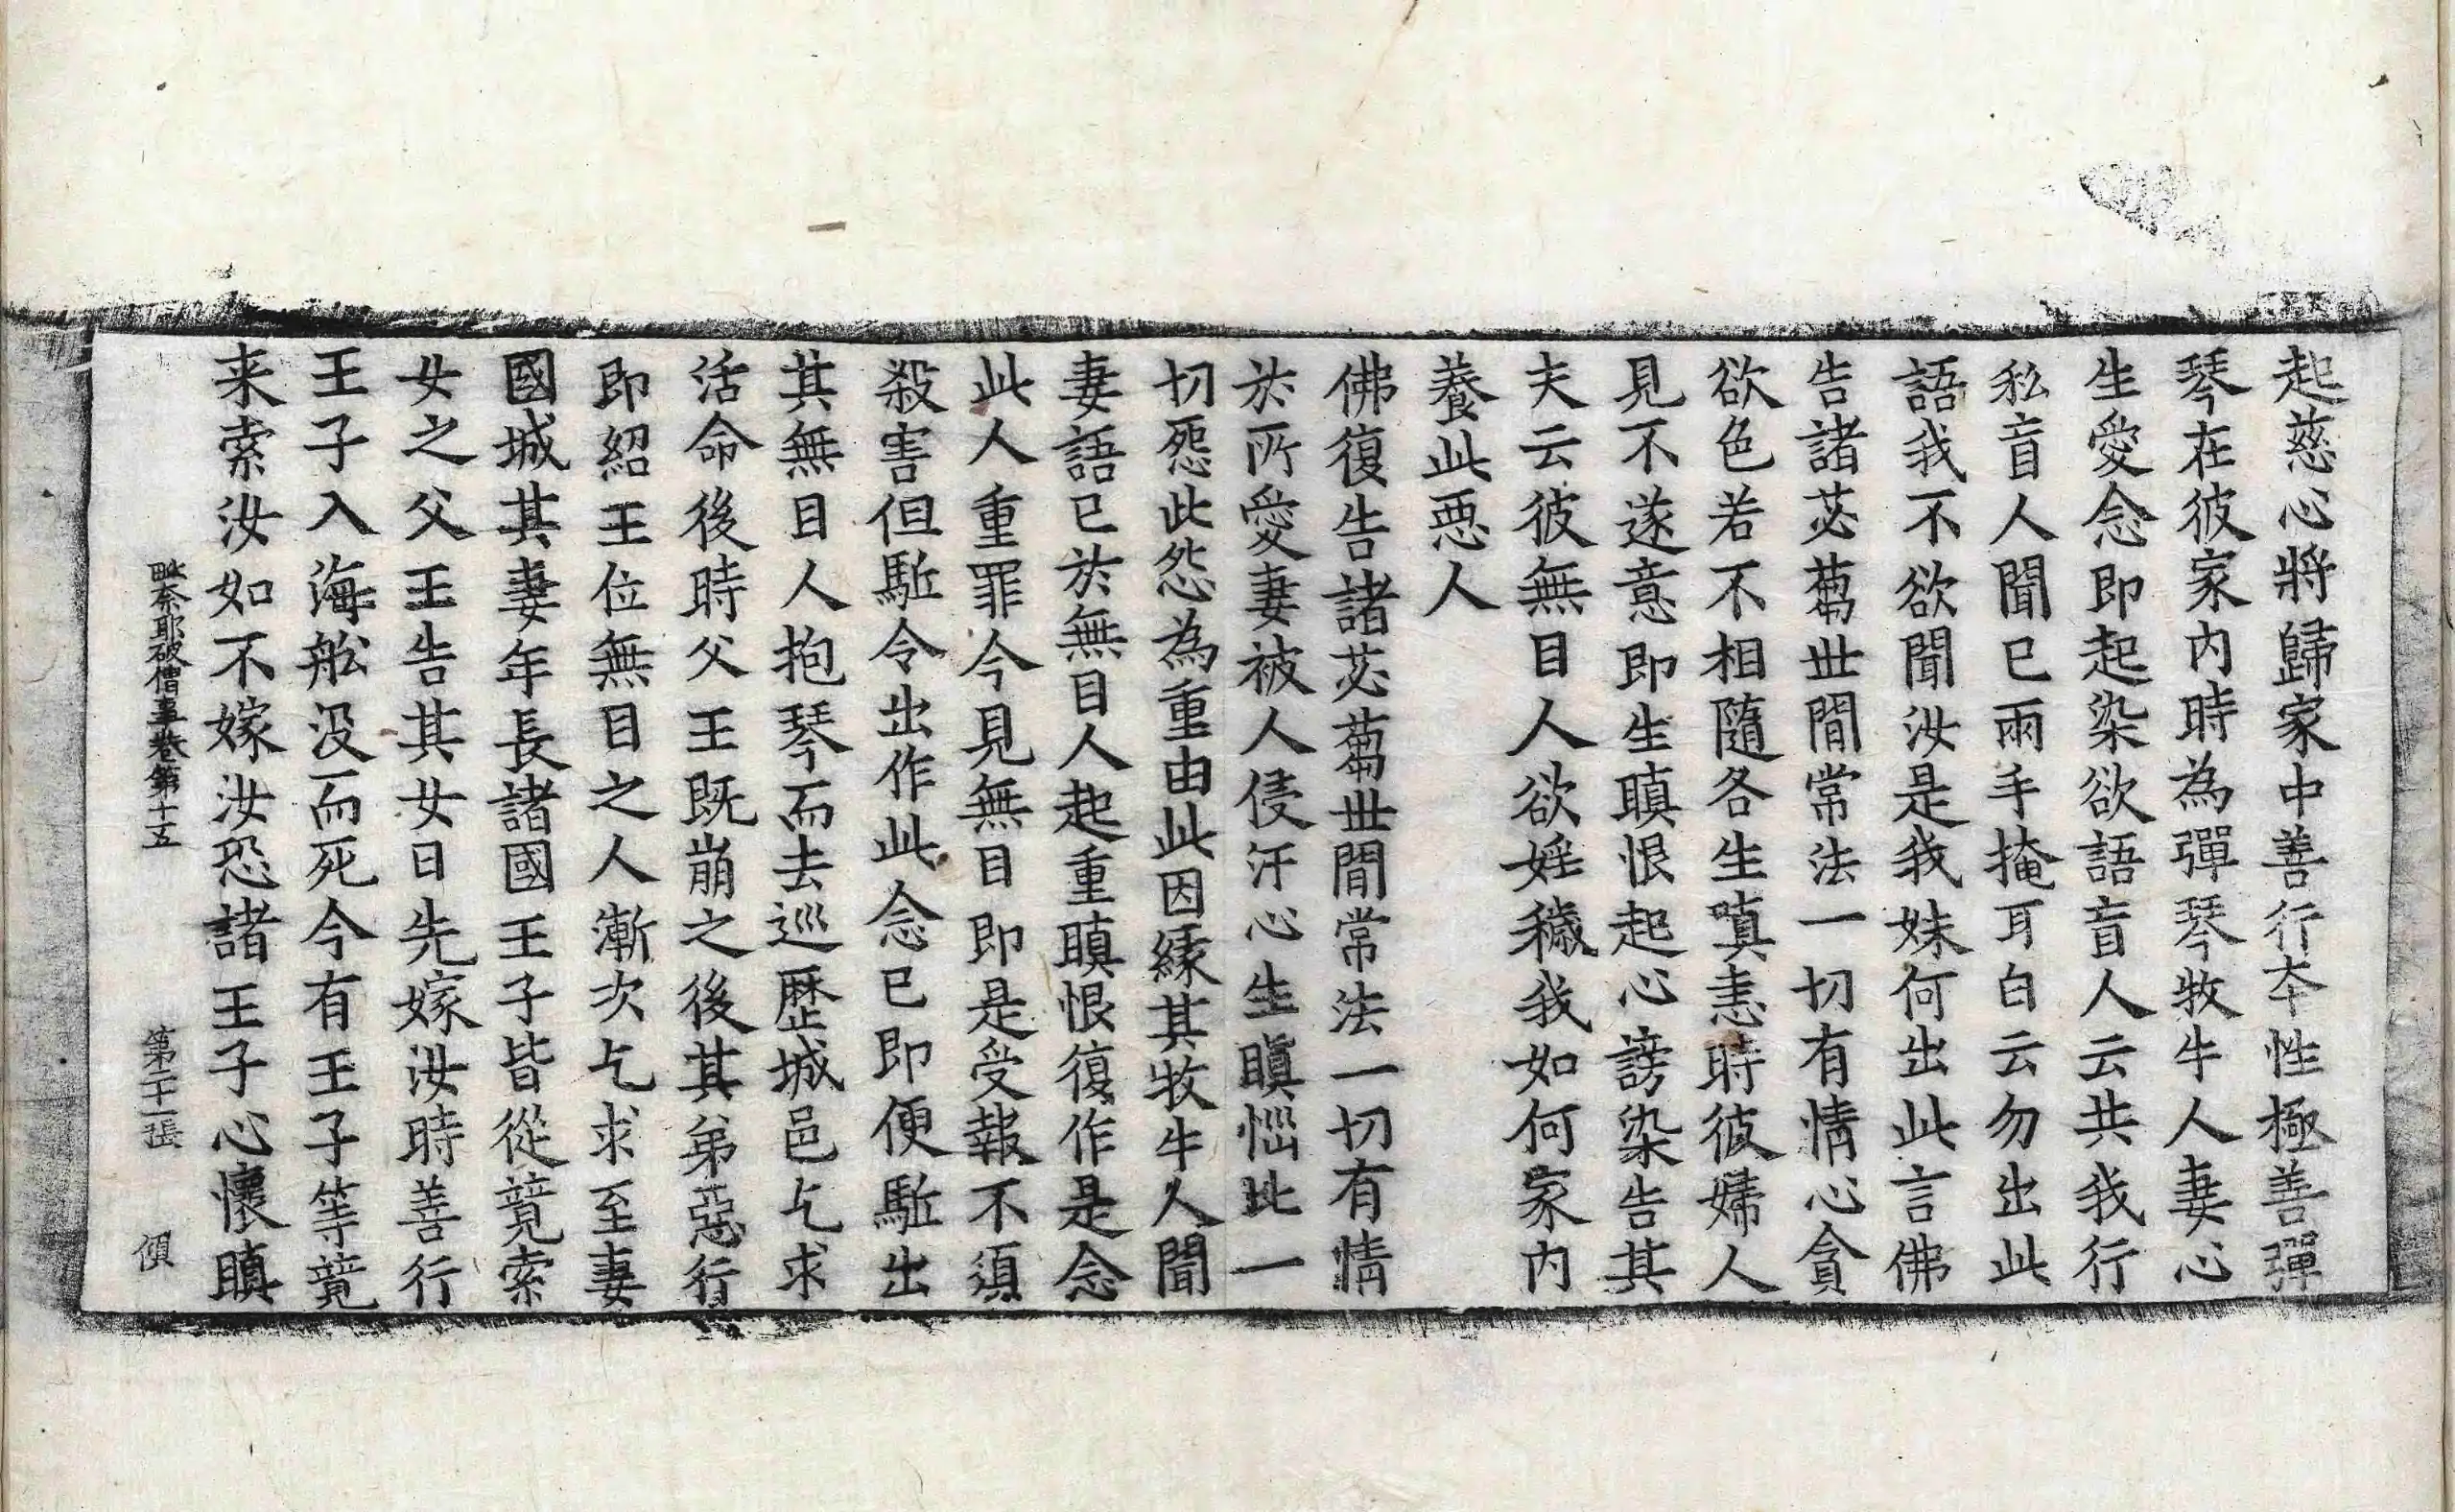 起慈心將歸家中善行夲性極善彈
琴在彼家内時為彈琴牧牛人妻心
生愛念即起染欲語盲人云共我行
私盲人聞已兩手掩耳白云勿出此
語我不欲聞汝是我妹何出此言佛
告諸苾蒭世間常法一切有情心貪
欲色若不相隨各生嗔恚時彼婦人
見不遂意即生瞋恨起心謗染告其
夫云彼無目人欲婬穢我如何家内
養此惡人
佛復告諸苾蒭世間常法一切有情
於所愛妻被人侵汙心生瞋惱此一
切怨此怨為重由此因緣其牧牛人聞
妻語已於無目人起重瞋恨復作是念
此人重罪今見無目即是受報不須
殺害但駈令出作此念已即便駈出
其無目人抱琴而去巡歷城邑乞求
活命後時父王既崩之後其弟惡行
即紹王位無目之人漸次乞求至妻
國城其妻年長諸國王子皆從競索
女之父王告其女曰先嫁汝時善行
王子入海舩没而死今有王子等競
来索汝如不嫁汝恐諸王子心懷瞋
毗奈耶破僧事卷第十五 第二十一張 傾